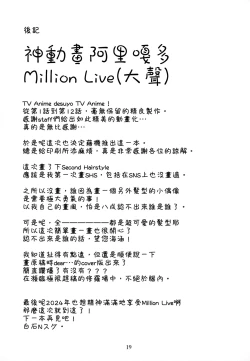 後記
神動畫阿里嘎多
Million Live(大聲)
TV Anime desuyo TV Anime！
從第1話到第12話，毫無保留的精良製作。
感謝staff們給出如此精美的動畫化…
真的是無比感謝…
於是呢這次也決定藉機推出這一本。
總是給印刷所添麻煩，真是非常感謝各位的諒解。
這次畫了下Second Hairstyle
應該是我第一次畫SHS，包括在SNS上也沒畫過。
之所以沒畫，誰因為畫一個另外髮型的小偶像
是需要極大勇氣的事！
以我自己的畫風，怕是八成認不出來誰是誰了。
可是吧，全————都是超可愛的髮型耶
所以這次簡單畫一畫也很開心了
認不出來是誰的話，望您海涵！
我知道扯得有點遠，但還是順便說一下
畫原稿時dear…的cover版出來了
簡直讚爆了有沒有？？？
在瀕臨極限趕稿的修羅場中，不絕於腦內。
最後呢2024年也想精神滿滿地享受Million Live啊
那麼這次就到這了！
下一本再見吧！
白石Nスケ。
19